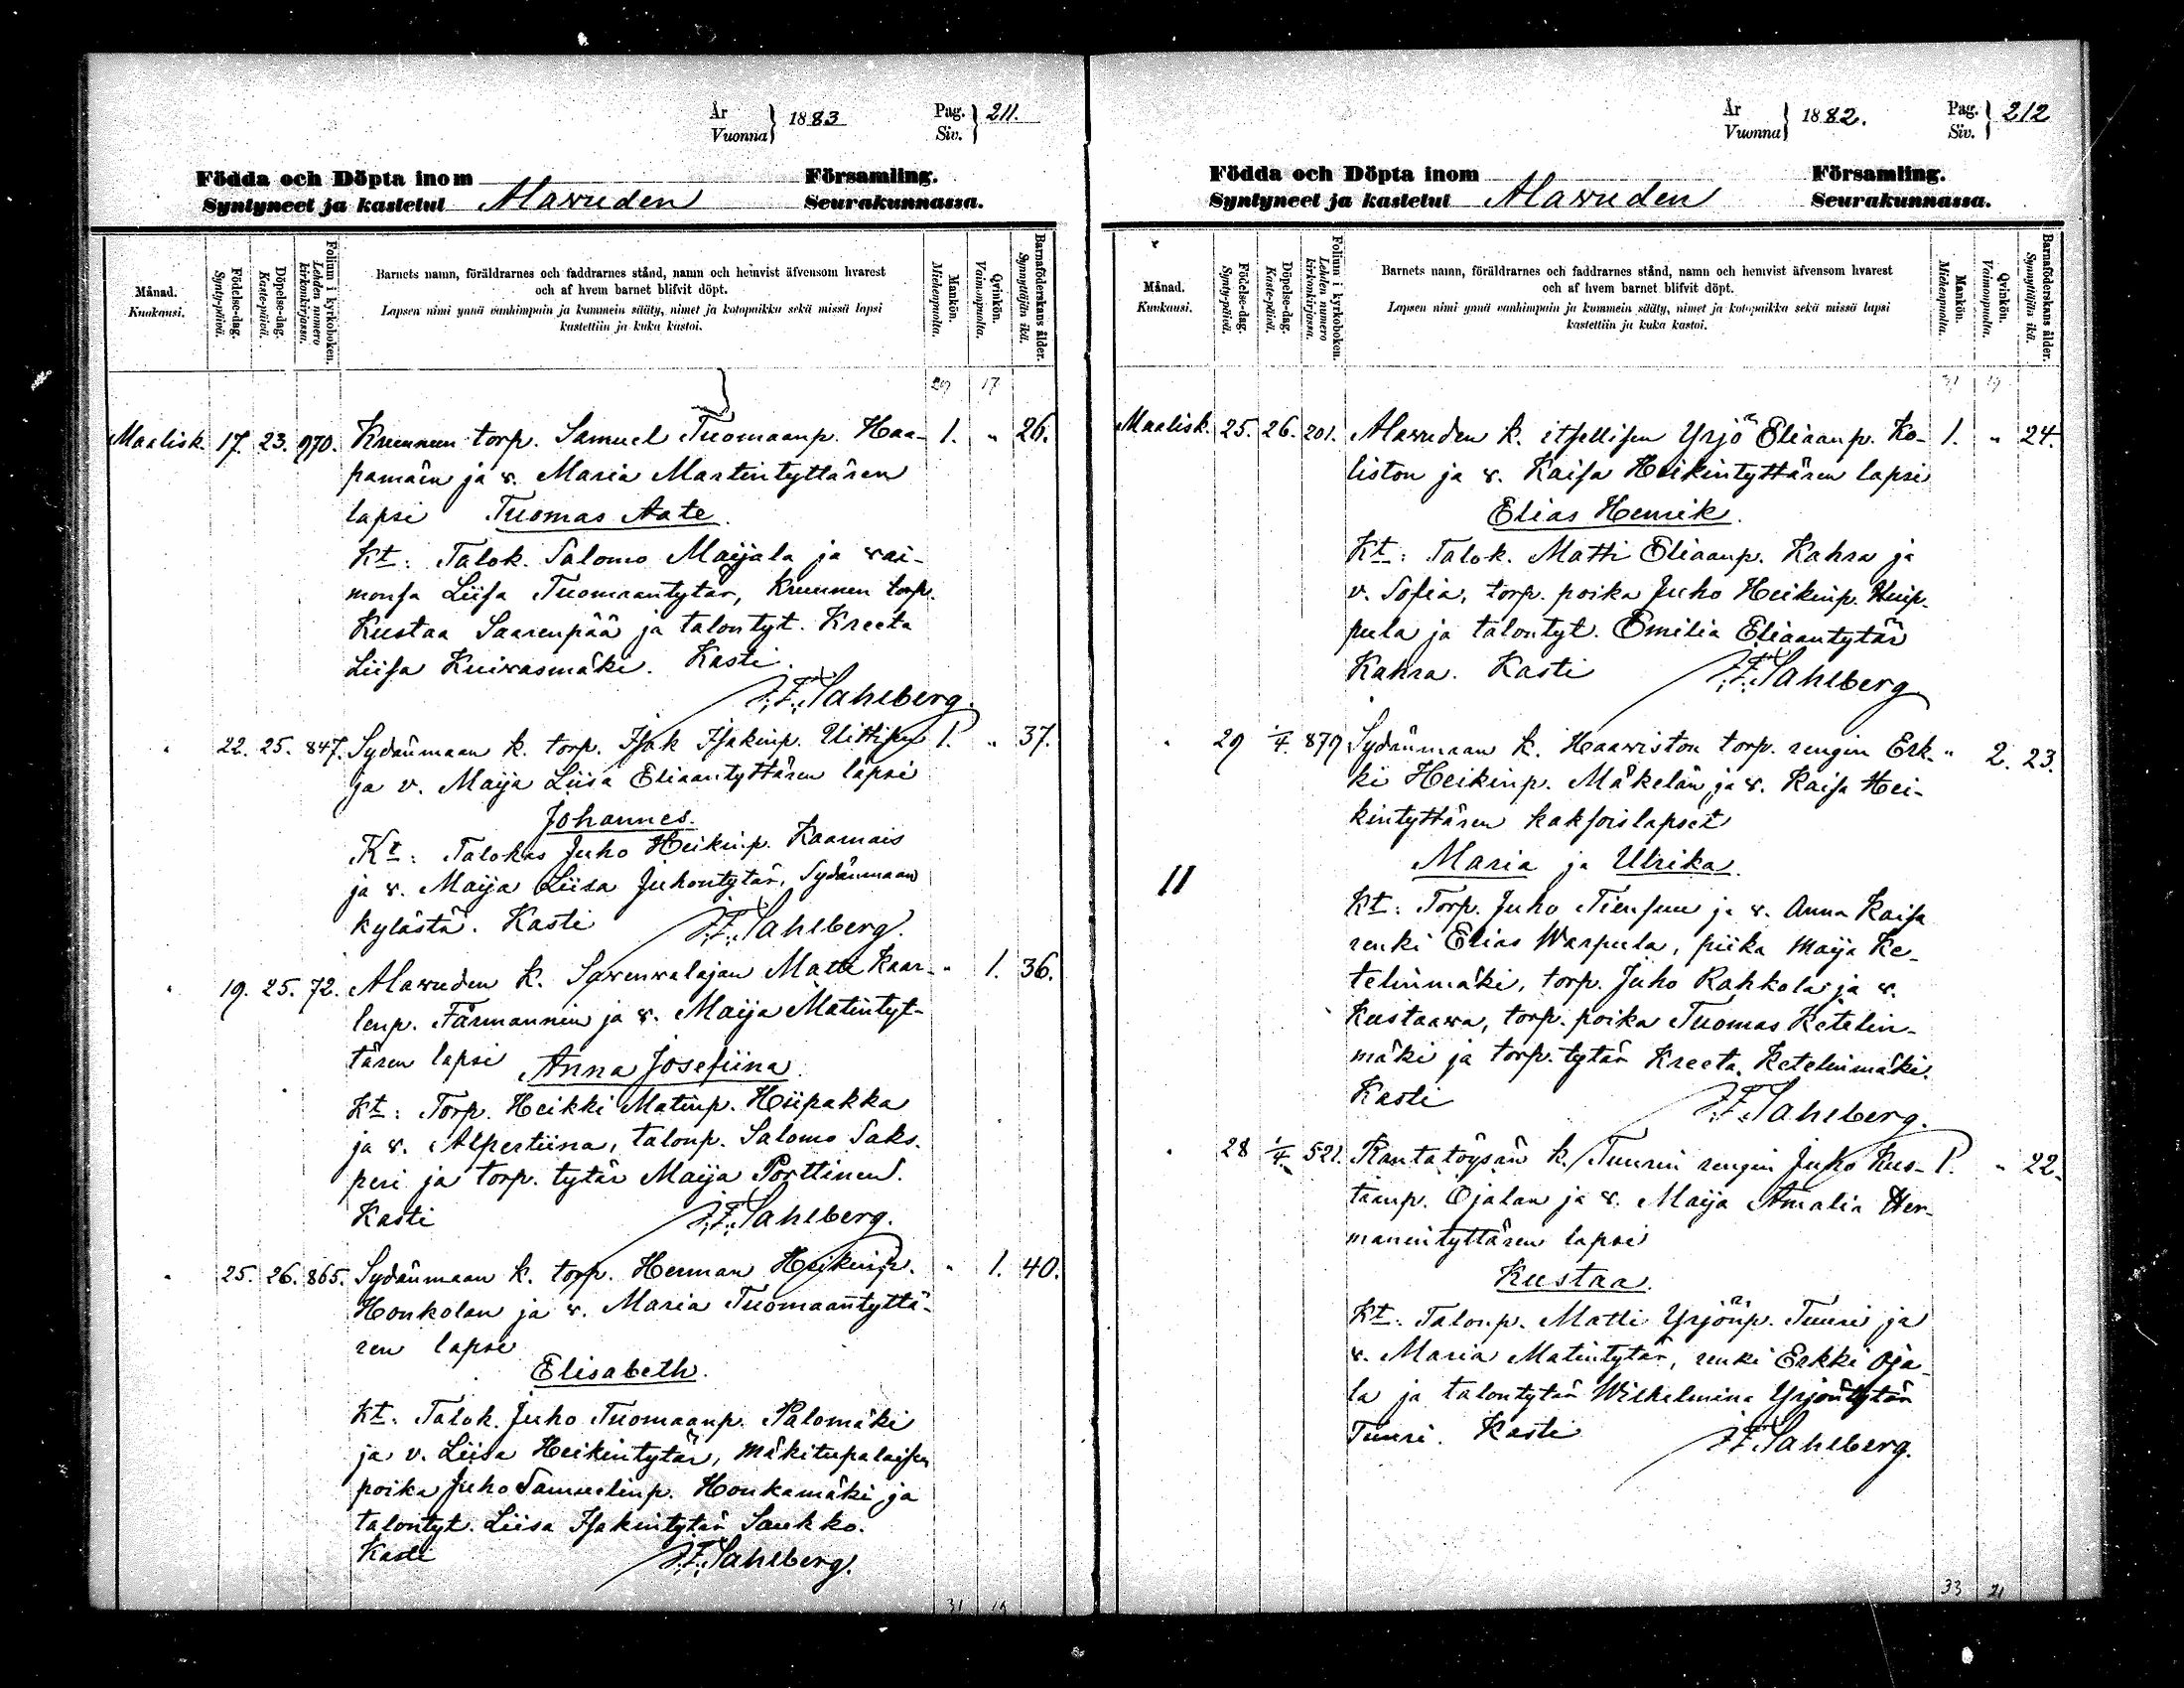 År
Vuonna } 1883
Pag.
Siv. } 211.
Födda och Döpta inom Församling.
Syntyneet ja kastetut Alavuden Seurakunnassa.
Månad.
Kuukausi.
Födelse-dag.
Synty-päivä.
Döpelse-dag.
Kaste-päivä.
Folium i kyrkoboken.
Lehden numero
kirkonkirjassa.
Barnets namn, föräldrarnes och faddrarnes stånd, namn och hemvist äfvensom hvarest
och af hvem barnet blifvit döpt.
Lapsen nimi ynnä vanhimpain ja kummein sääty, nimet ja kotopaikka sekä missä lapsi
kastettiin ja kuka kastoi.
Mankön.
Miehenpuolta.
Qvinkön.
Vaimonpuolta.
Barnaföderskans ålder.
Synnyttäjän ikä.
29 17
Maalisk. 17. 23. 970. Kruunun torp. Samuel Tuomaanp. Haa- 1. " 26.
pamäen ja v. Maria Martintyttären
lapsi Tuomas Aate.
Kt: Talok. Salomo Maijala ja vai-
monsa Liisa Tuomaantytär, Kruunun torp.
Kustaa Saarenpää ja talontyt. Kreeta
Liisa Kuivasmäki. Kasti
J.F. Sahlberg.
" 22. 25. 847. Sydänmaan k. torp. Isak Isakinp. Uittisen 1. " 37.
ja v. Maija Liisa Eliaantyttären lapsi
Johannes.
Kt: Talokas Juho Heikinp. Kaamais
ja v. Maija Liisa Juhontytär, Sydänmaan
kylästä. Kasti J.F. Sahlberg.
" 19. 25. 72. Alavuden k. Savenvalajan Matti Kaar- " 1. 36.
lenp. Färmannin ja v. Maija Matintyt-
tären lapsi Anna Josefiina.
Kt: Torp. Heikki Matinp. Hiipakka
ja v. Alpertiina, talonp. Salomo Saks.
peri ja torp. tytär Maija Porttinen.
Kasti J.F. Sahlberg.
" 25. 26. 865. Sydänmaan k. torp. Herman Heikinp. " 1. 40.
Honkolan ja v. Maria Tuomaantyttä-
ren lapsi
Elisabeth.
Kt: Talok. Juho Tuomaanp. Palomäki
ja v. Liisa Heikintytär, Mäkitupalaisen
poika Juho Samuelinp. Honkamäki ja
talontyt. Liisa Isakintytär Saukko.
Kasti J.F. Sahlberg.
31 19
År
Vuonna } 1882.
Pag.
Siv. } 212
Födda och Döpta inom Församling.
Syntyneet ja kastetut Alavuden Seurakunnassa.
Månad.
Kuukausi.
Födelse-dag.
Synty-päivä.
Döpelse-dag.
Kaste-päivä.
Folium i kyrkoboken.
Lehden numero
kirkonkirjassa.
Barnets namn, föräldrarnes och faddrarnes stånd, namn och hemvist äfvensom hvarest
och af hvem barnet blifvit döpt.
Lapsen nimi ynnä vanhimpain ja kummein sääty, nimet ja kotopaikka sekä missä lapsi
kastettiin ja kuka kastoi.
Mankön.
Miehenpuolta.
Qvinkön.
Vaimonpuolta.
Barnaföderskans ålder.
Synnyttäjän ikä.
31 19
Maalisk. 25. 26. 201. Alavuden k. itsellisen Yrjö Eliaanp. Ko- 1. " 24.
liston ja v. Kaisa Heikintyttären lapsi
Elias Henrik.
Kt: Talok. Matti Eliaanp. Kahra ja
v. Sofia, torp. poika Juho Heikinp. Huip-
pula ja talontyt. Emilia Eliaantytär
Kahra. Kasti J.F. Sahlberg
" 29 1/4. 879 Sydänmaan k. Haaviston torp. rengin Erk- " 2. 23.
ki Heikinp. Mäkelän ja v. Kaisa Hei-
kintyttären kaksoislapset
Maria ja Ulrika.
11
Kt: Torp. Juho Tiensuu ja v. Anna Kaisa
renki Elias Warpula, piika Maija Ke-
telinmäki, torp. Juho Rahkola ja v.
Kustaava, torp. poika Tuomas Ketelin-
mäki ja torp. tytär Kreeta Ketelinmäki.
Kasti J.F. Sahlberg.
" 28 1/4. 521. Rantatöysän k. Tuurin rengin Juho Kus- 1. " 22.
taanp. Ojalan ja v. Maija Amalia Her-
manintyttären lapsi
Kustaa.
Kt: Talonp. Matti Yrjönp. Tuuri ja
v. Maria Matintytär, renki Erkki Oja-
la ja talontytär Wilhelmina Yrjöntytär
Tuuri. Kasti J.F. Sahlberg.
33 21